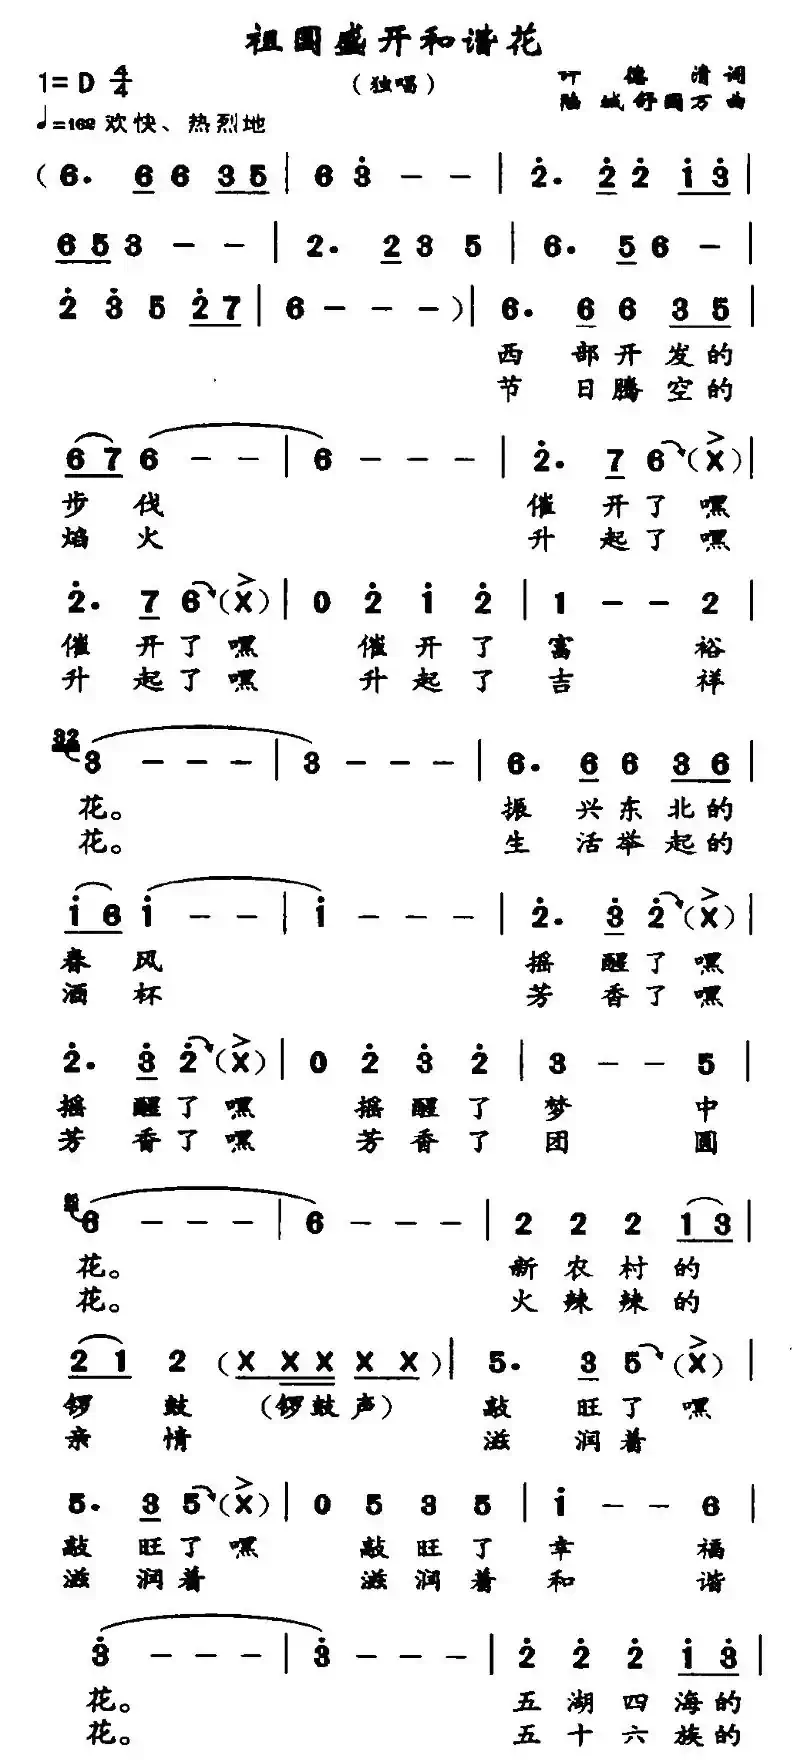 祖国盛开和谐花
1= D 4/4 （独唱） 叶德清词
♩=162 欢快、热烈地 陆城舒国万曲
(6. 6 6 3 5 | 6 3̇ - - | 2̇. 2̇ 2̇ 1̇ 3̇ |
6 5 3 - - | 2. 2 3 5 | 6. 5 6 - |
2̇ 3̇ 5 2̇ 7 | 6 - - - ) | 6. 6 6 3 5 |
西 部 开 发 的
节 日 腾 空 的
6 7 6 - - | 6 - - - | 2̇. 7 6 (X) |
步 伐 催 开 了 嘿
焰 火 升 起 了 嘿
2̇. 7 6 (X) | 0 2̇ 1̇ 2̇ | 1 - - 2 |
催 开 了 嘿 催 开 了 富 裕
升 起 了 嘿 升 起 了 吉 祥
32 3 - - - | 3 - - - | 6. 6 6 3 6 |
花。 振 兴 东 北 的
花。 生 活 举 起 的
1̇ 6 1̇ - - | 1̇ - - - | 2̇. 3̇ 2̇ (X) |
春 风 摇 醒 了 嘿
酒 杯 芳 香 了 嘿
2̇. 3̇ 2̇ (X) | 0 2̇ 3̇ 2̇ | 3 - - 5 |
摇 醒 了 嘿 摇 醒 了 梦 中
芳 香 了 嘿 芳 香 了 团 圆
6 - - - | 6 - - - | 2 2 2 1 3 |
花。 新 农 村 的
花。 火 辣 辣 的
2 1 2 (X X X X X) | 5. 3 5 (X) |
锣 鼓 （锣鼓声） 敲 旺 了 嘿
亲 情 滋 润 着
5. 3 5 (X) | 0 5 3 5 | 1̇ - - 6 |
敲 旺 了 嘿 敲 旺 了 幸 福
滋 润 着 滋 润 着 和 谐
3̇ - - - | 3̇ - - - | 2̇ 2̇ 2̇ 1̇ 3̇ |
花。 五 湖 四 海 的
花。 五 十 六 族 的